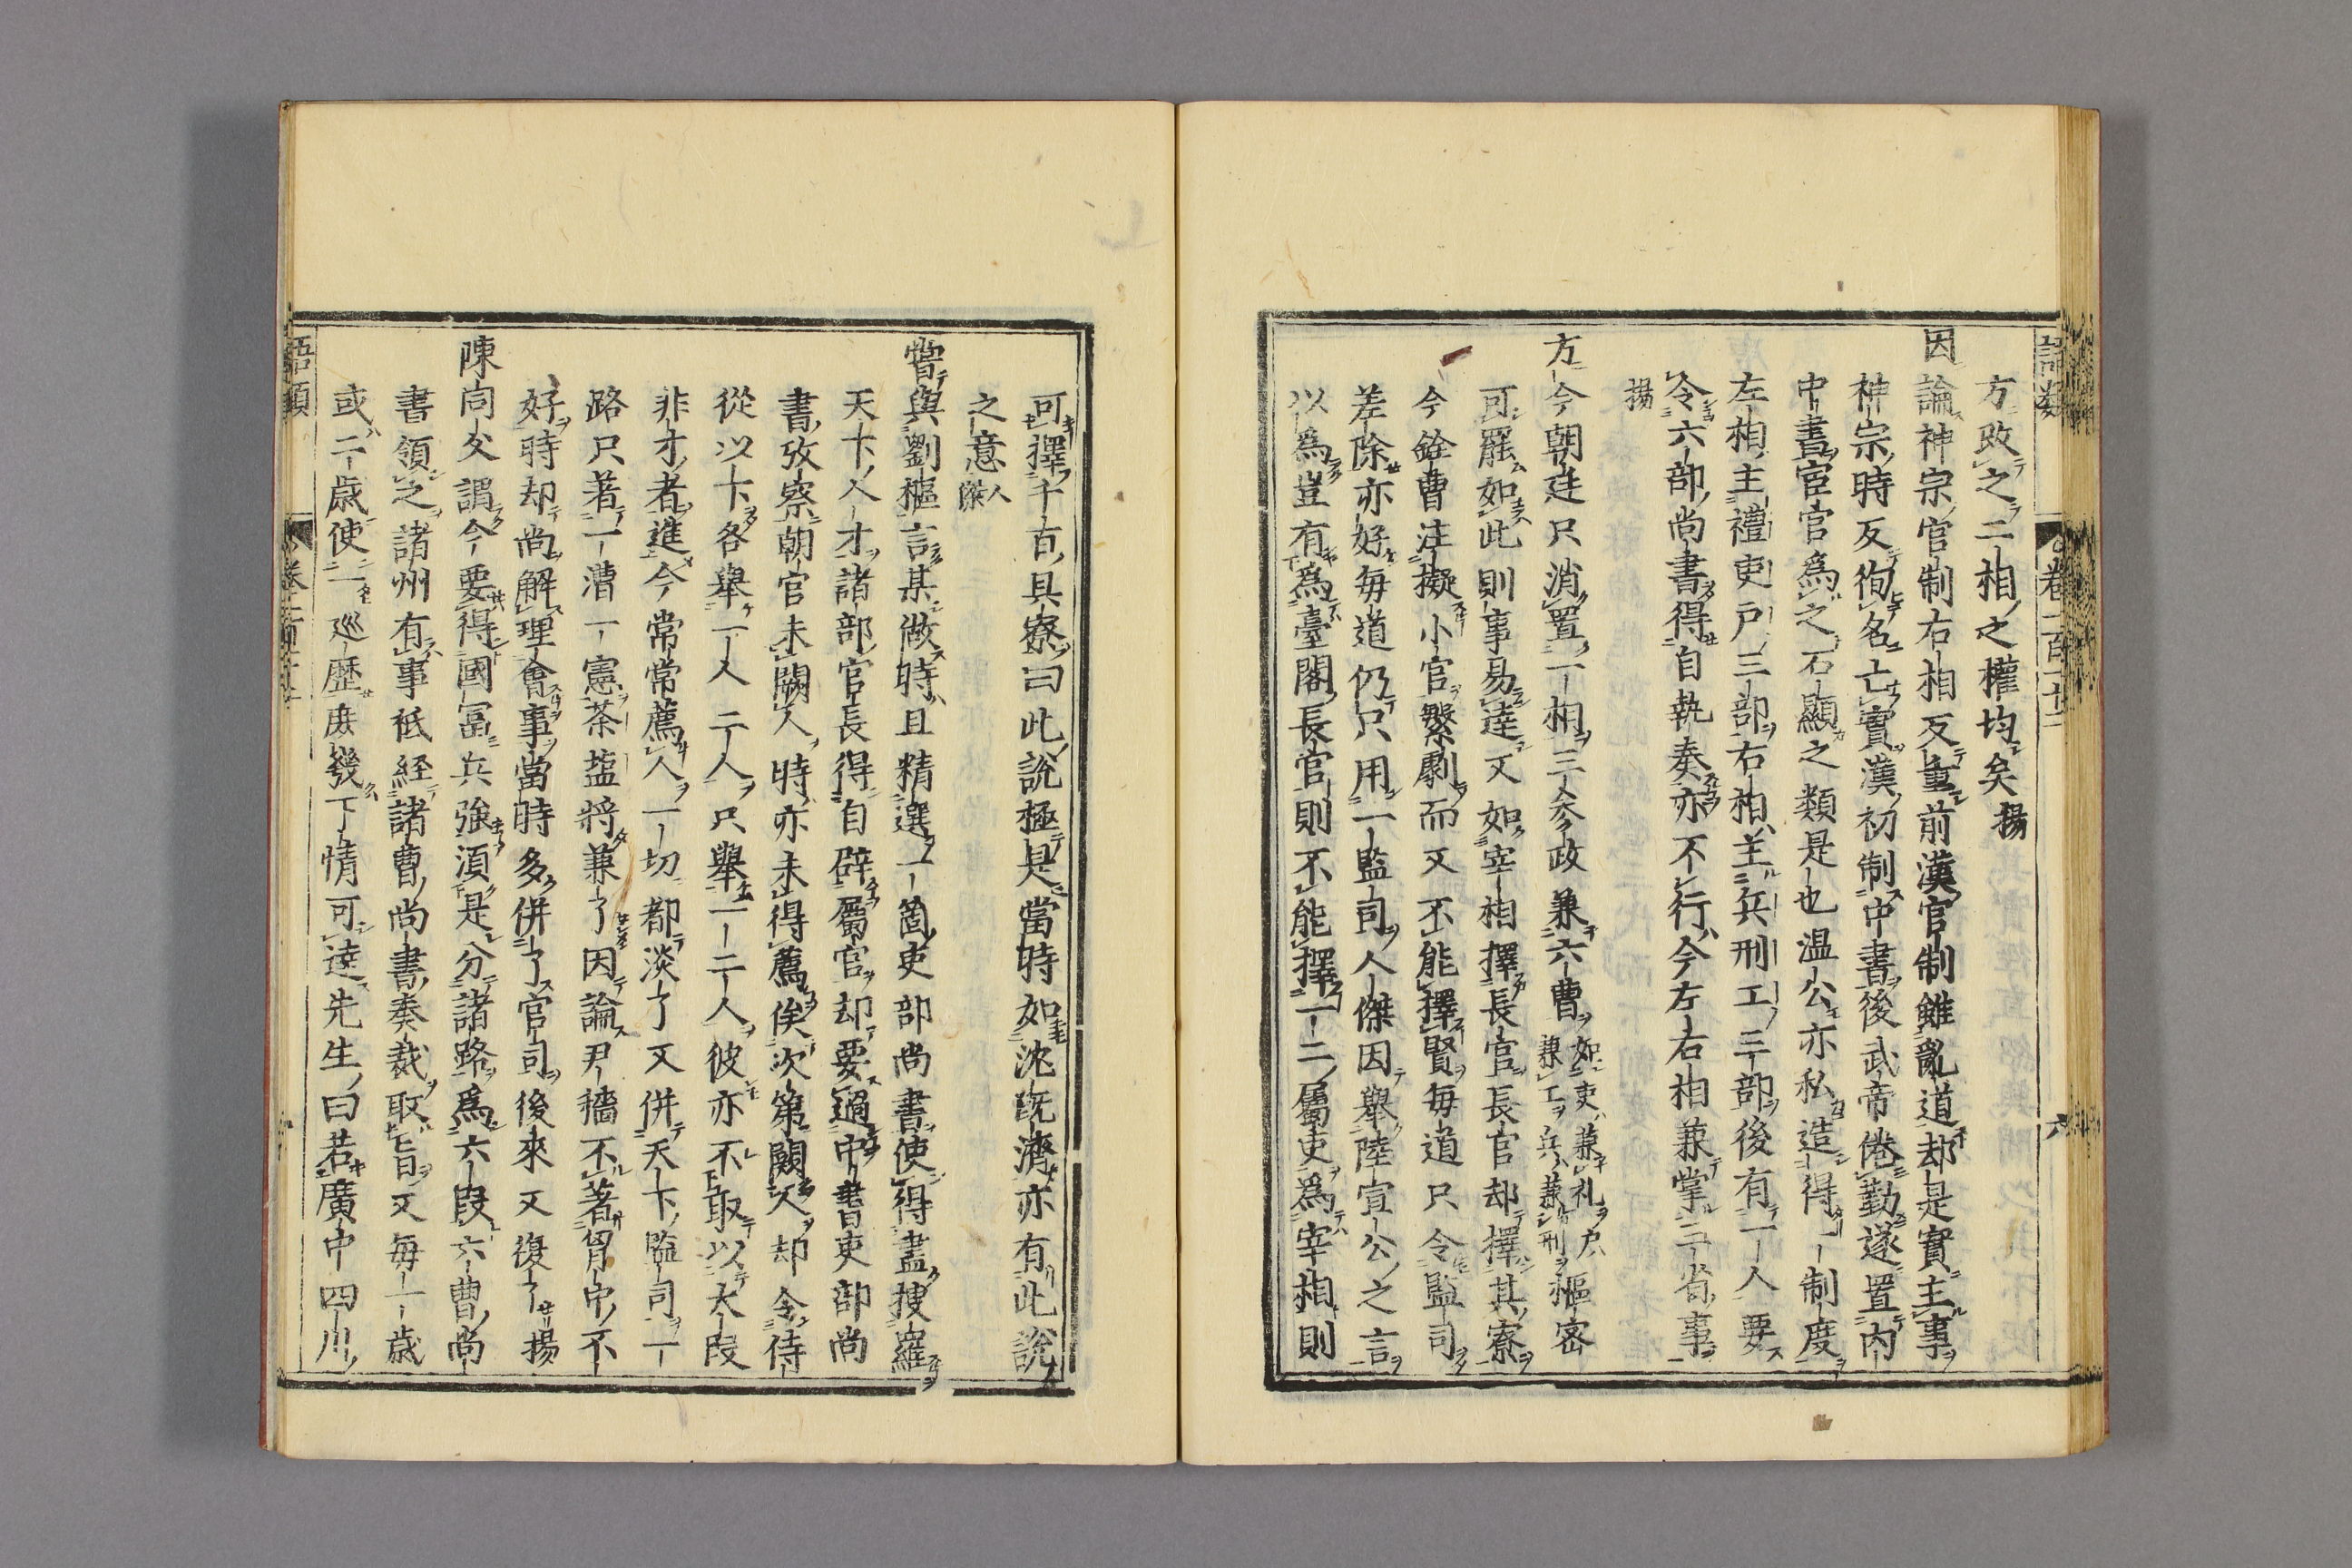 語類
卷一百一十二
六
方改之二相之權均矣揚
因論神宗官制右相反重前漢官制雖亂道却是實主事
神宗時反徇名亡實漢初制中書後武帝倦勤遂置内
中書宦官爲之石顯之類是也溫公亦私造得一制度
左相主禮吏戶三部右相主兵刑工三部後有一人要
令六部尚書得自執奏亦不行今左右相兼掌三省事
揚
方今朝廷只消置一相三參政兼六曹如吏兼礼户兼工兵兼刑樞密
可罷如此則事易達又如宰相擇長官長官却擇其寮
今銓曹注擬小官繁劇而又不能擇賢每道只令監司
差除亦好每道仍只用一監司人傑因舉陸宣公之言
以爲豈有爲臺閣長官則不能擇一二屬吏爲宰相則
可擇千百具寮曰此說極是當時如沈旣濟亦有此說
之意人傑
嘗與劉樞言某做時且精選一箇吏部尚書使得盡搜羅
天下人才諸部官長得自辟屬官却要過中書吏部尚
書攷察朝官未闕人時亦未得薦俟次第闕人却令侍
從以下各舉一人二人只舉一二人彼亦不敢以大段
非才者進今常常薦人一切都淡了又併天下監司一
路只著一漕一憲茶塩將兼了因論尹穡不著胷中不
好時却尚解理會事當時多併了官司後來又復了揚
陳同父謂今要得國冨兵強湏是分諸路爲六段六曹尚
書領之諸州有事祗經諸曹尚書奏裁取旨又每一歲
或二歲使一巡歷庶幾下情可達先生曰若廣中四川
語類